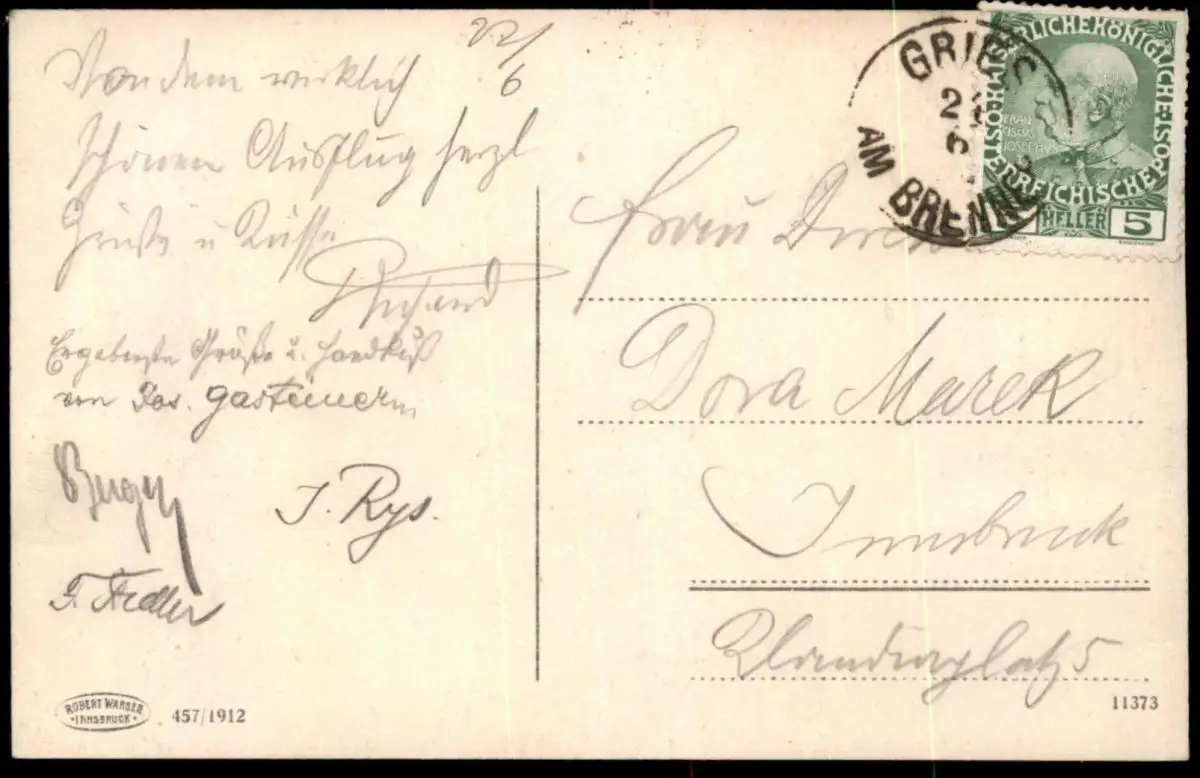 22/6
Von dem wirklich
schönen Ausflug herzl
Grüße u Küsse
Richard
Ergebenste Grüße u. Handkuß
von Jos. Gasteiner
Berger
J. Rys.
F. Fiedler
ROBERT WARGER
INNSBRUCK
457/1912
GRIES
AM BRENNER
KAISERLICHE KÖNIGLICHE POST
ÖSTERREICHISCHE
FRANCISCUS
JOSEPHUS
HELLER 5
Frau
Dora Marek
Innsbruck
Claudiaplatz 5
11373